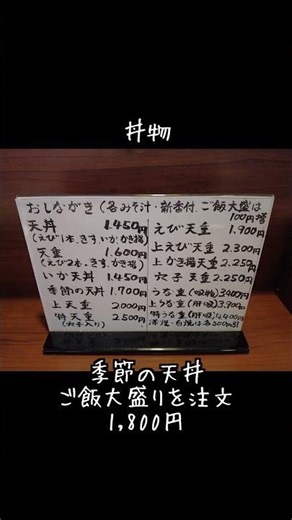 丼物
おしながき(各みそ汁・新香付.ご飯大盛は
100円増
天丼 1.450円
(えび1本、きす、いか、かき揚)
天重 1.600円
(えび2本、きす、かき揚)
いか天丼 1.450円
季節の天丼 1.700円
上天重 2000円
特天重 2500円
(穴子入り)
えび天重 1.900円
上えび天重 2.300円
上かき揚天重 2.250円
穴子天重 2.250円
うな重(吸物)3400円
上うな重(肝吸)3.900円
特うな重(肝吸)4.400円
季節の天丼
ご飯大盛りを注文
1,800円